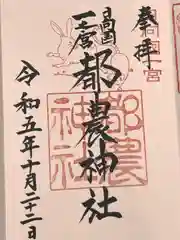 奉拝
日向国
一之宮
都農神社
令和五年十月二十二日
都農
神社